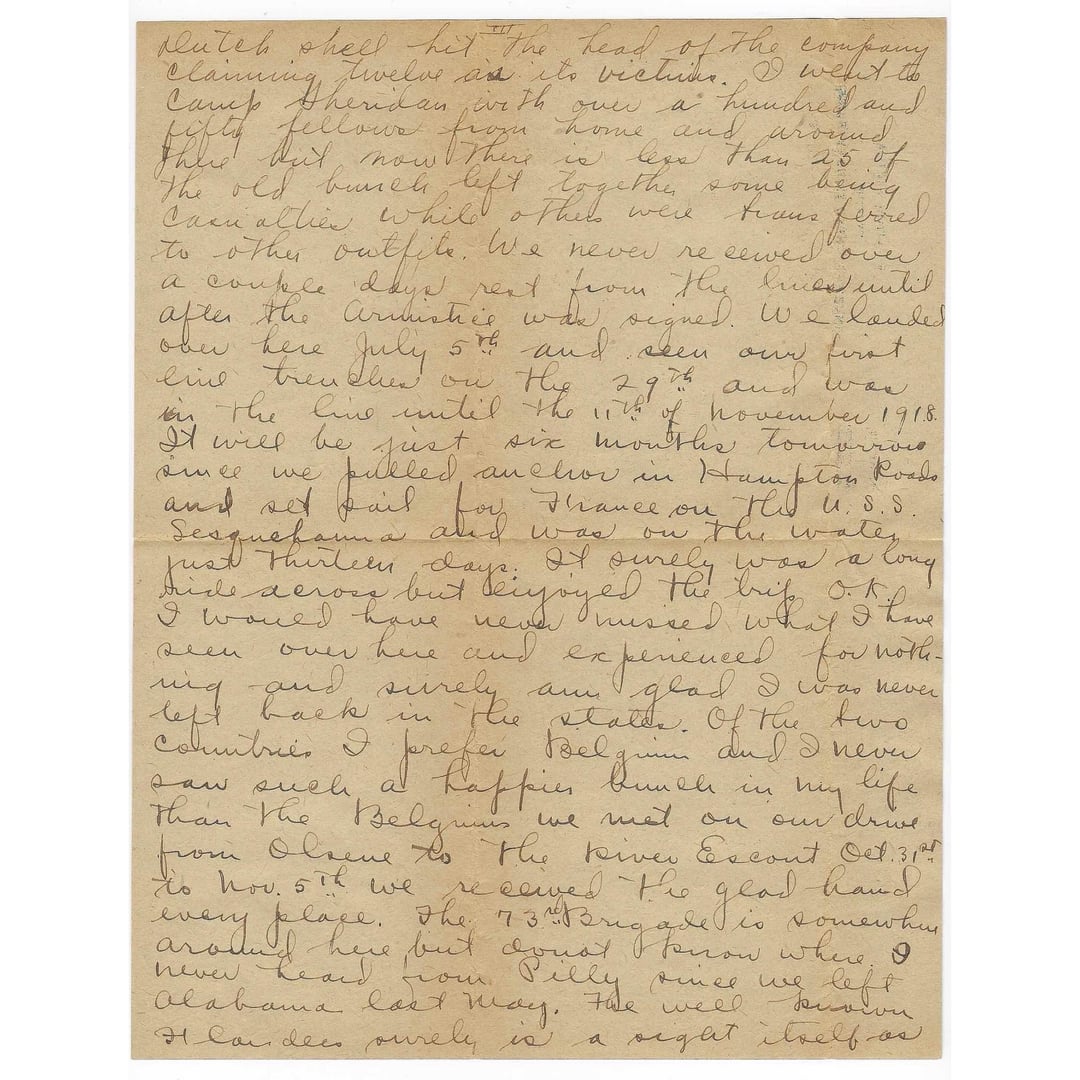 III
dutch shell hit the head of the company
claiming twelve as its victims. I went to
Camp Sheridan with over a hundred and
fifty fellows from home and around
there but now there is less than 25 of
the old bunch left together some being
casualties while others were transferred
to other outfits. We never received over
a couple days rest from the lines until
after the Armistice was signed. We landed
over here July 5th and seen our first
line trenches on the 29th and was
in the line until the 11th of November 1918.
It will be just six months tomorrow
since we pulled anchor in Hampton Roads
and set sail for France on the U.S.S.
Sesquehanna and was on the water
just thirteen days. It surely was a long
ride across but enjoyed the trip O.K.
I would have never missed what I have
seen over here and experienced for noth-
ing and surely am glad I was never
left back in the states. Of the two
countries I prefer Belgium and I never
saw such a happier bunch in my life
than the Belgiums we met on our drive
from Olsene to the River Escout Oct. 31st
to Nov. 5th we received the glad hand
every place. The 73rd Brigade is somewhere
around here but donot know where. I
never heard from Pilly since we left
Alabama last May. The well known
Flanders surely is a sight itself as